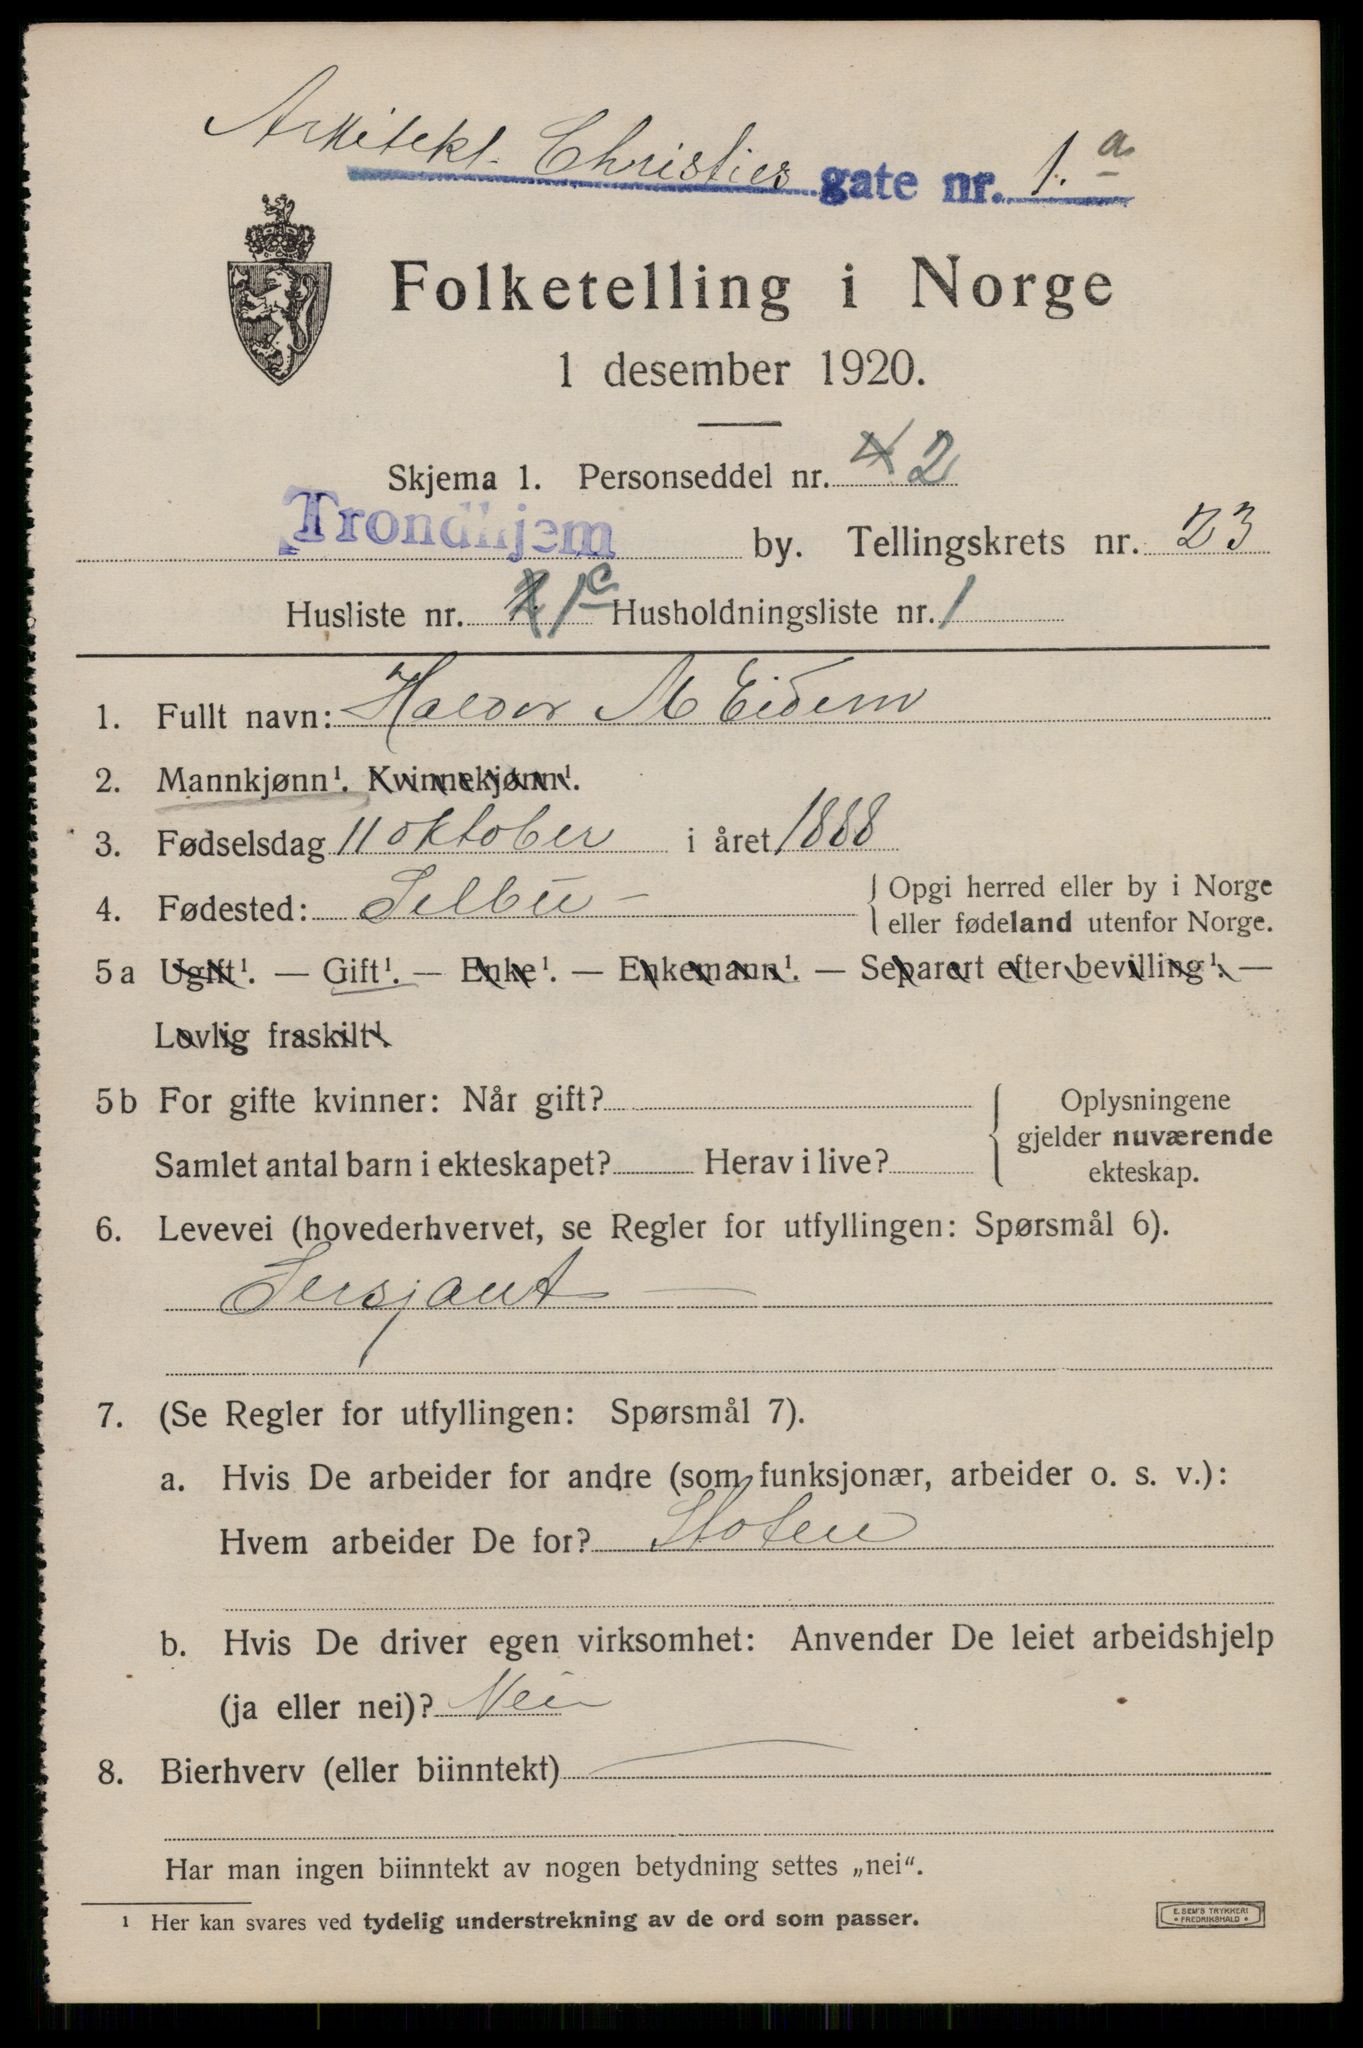 Arkitekt Christies gate nr. 1.a
Folketelling i Norge
1 desember 1920.
Skjema 1. Personseddel nr. 4 2
Trondhjem by. Tellingskrets nr. 23
Husliste nr. 1c Husholdningsliste nr. 1
1. Fullt navn: Haldor M Eidem
2. Mannkjønn¹. Kvinnekjønn¹.
3. Fødselsdag 11 oktober i året 1888
4. Fødested: Selbu — Opgi herred eller by i Norge
eller fødeland utenfor Norge.
5a Ugift¹. — Gift¹. — Enke¹. — Enkemann¹. — Separert efter bevilling¹. —
Lovlig fraskilt¹.
5b For gifte kvinner: Når gift? Oplysningene
gjelder nuværende
Samlet antal barn i ekteskapet? Herav i live? ekteskap.
6. Levevei (hovederhvervet, se Regler for utfyllingen: Spørsmål 6).
Sersjant —
7. (Se Regler for utfyllingen: Spørsmål 7).
a. Hvis De arbeider for andre (som funksjonær, arbeider o. s. v.):
Hvem arbeider De for? Staten
b. Hvis De driver egen virksomhet: Anvender De leiet arbeidshjelp
(ja eller nei)? Nei
8. Bierhverv (eller biinntekt) —
Har man ingen biinntekt av nogen betydning settes „nei“.
¹ Her kan svares ved tydelig understrekning av de ord som passer.
E. SEM'S TRYKKERI
• FREDRIKSHALD •